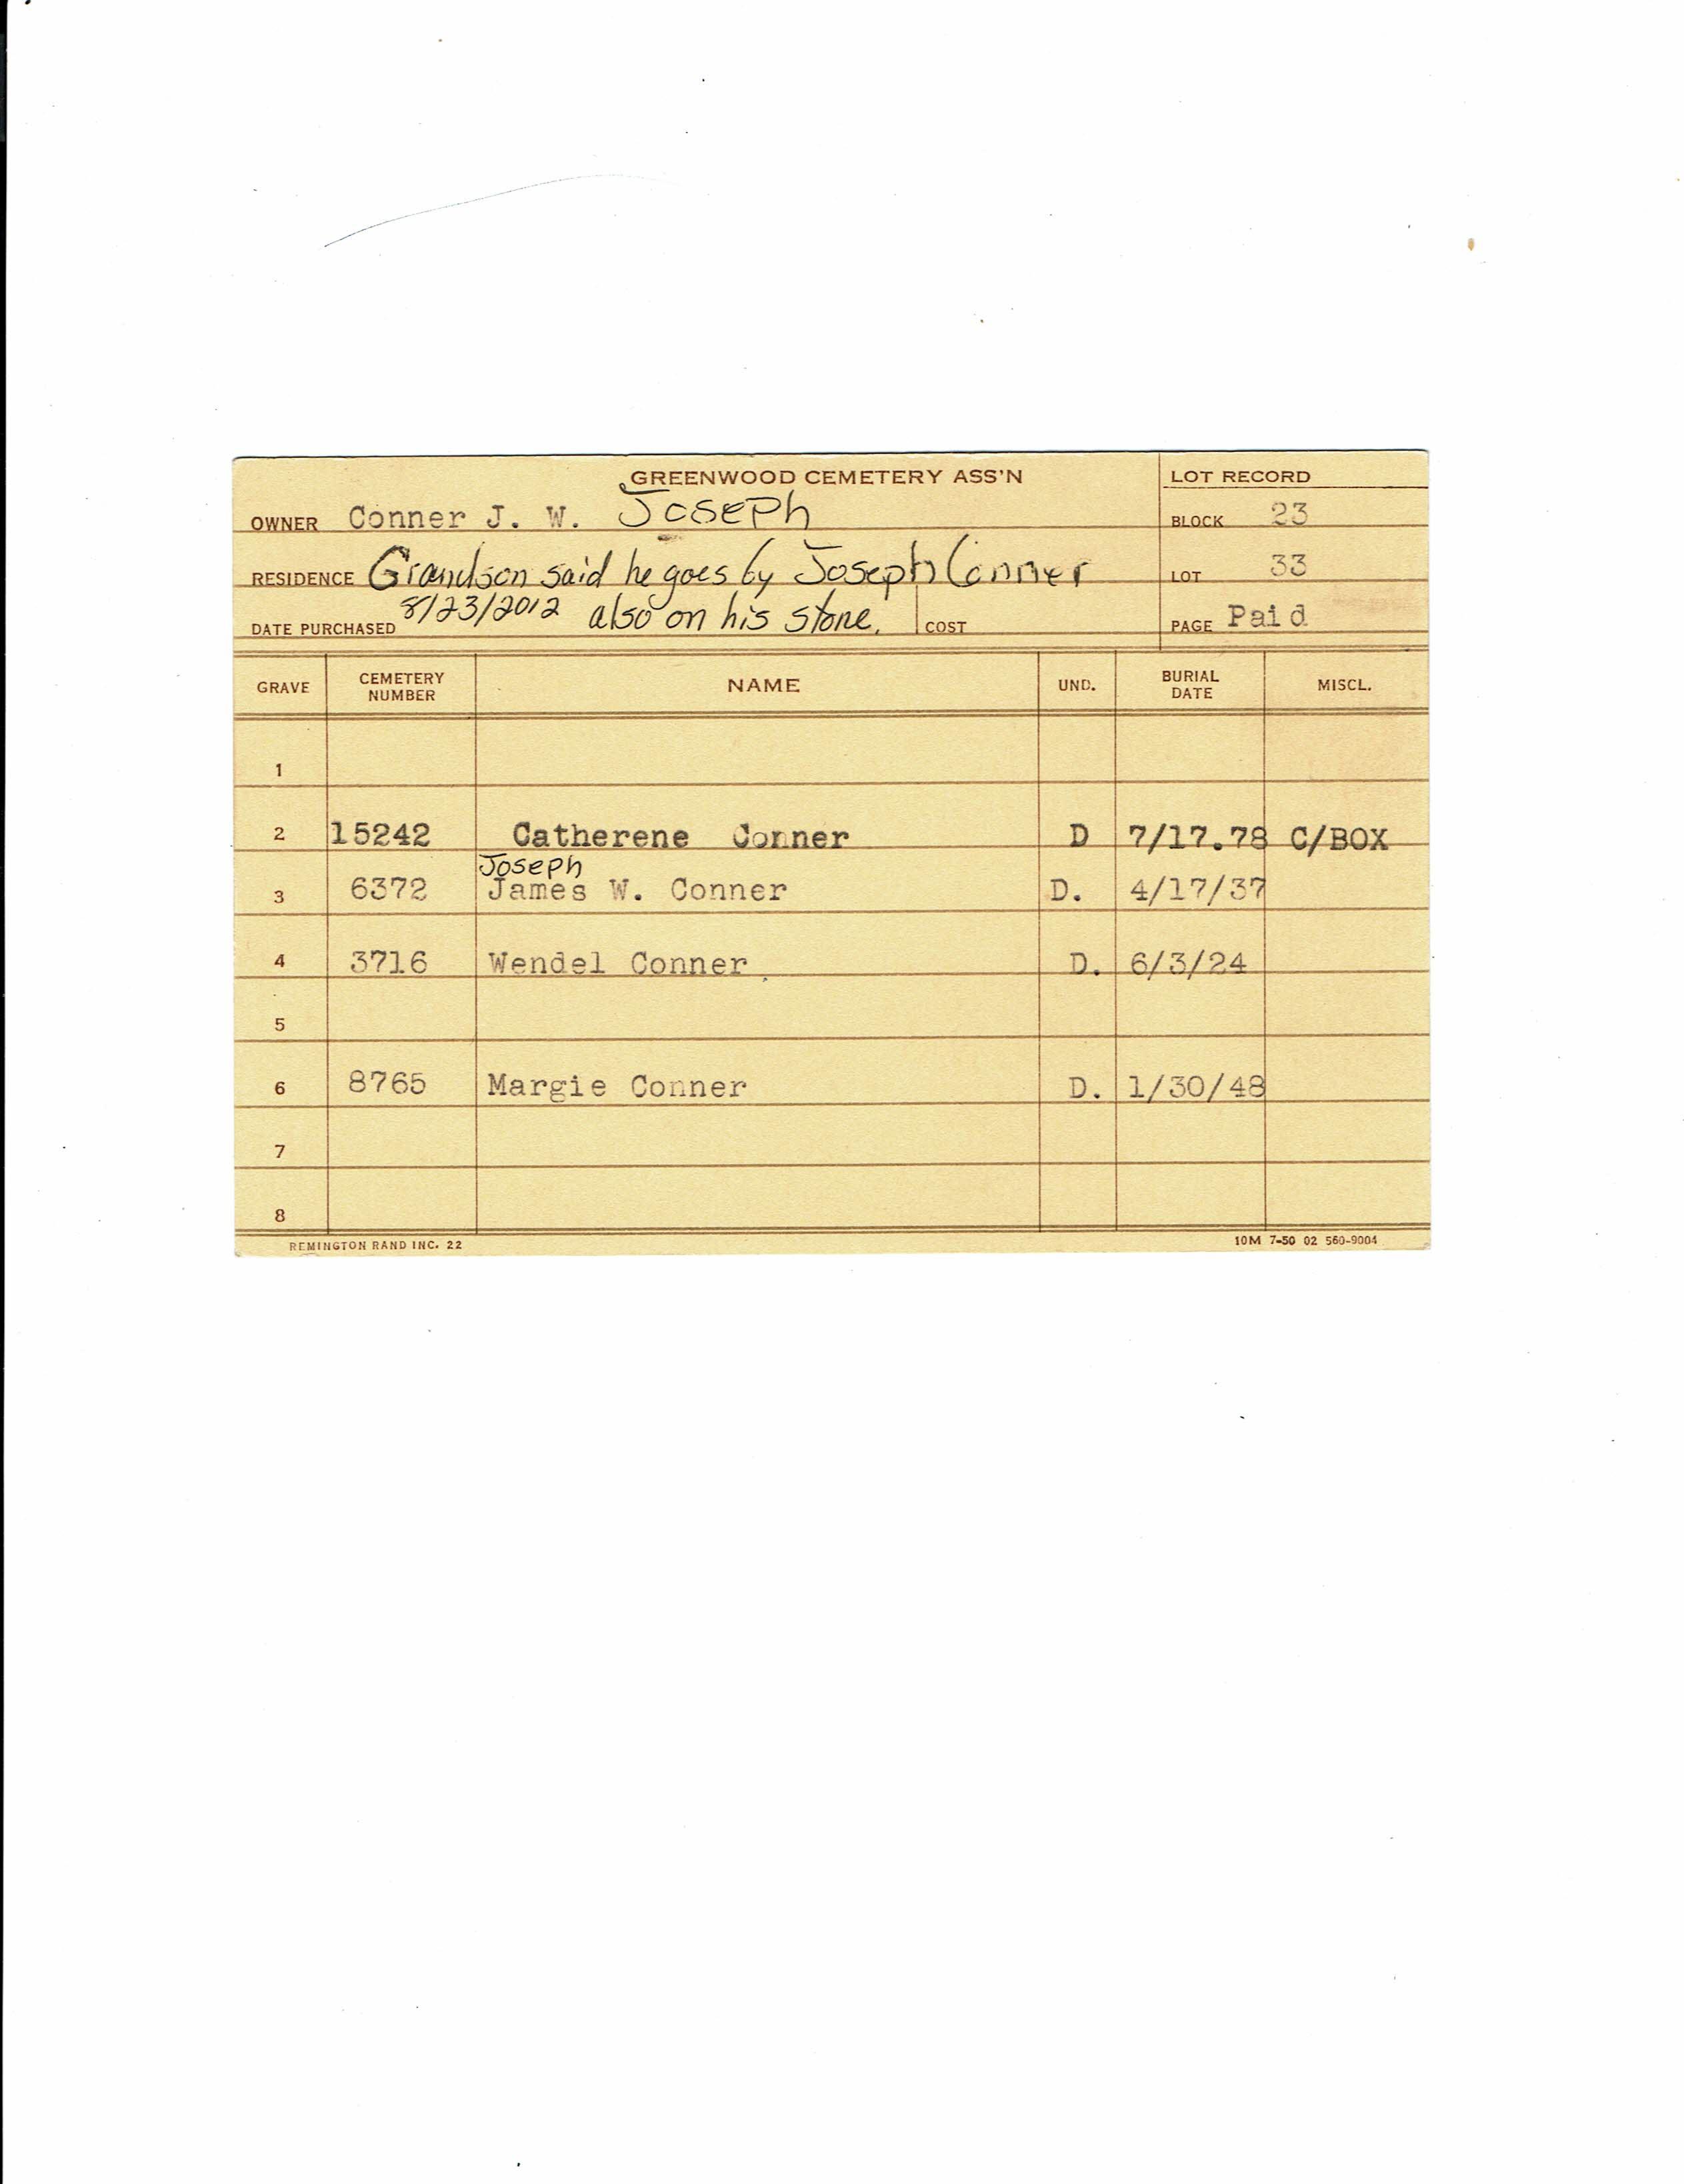 GREENWOOD CEMETERY ASS'N LOT RECORD
OWNER Conner J. W. Joseph BLOCK 23
RESIDENCE Grandson said he goes by Joseph Conner LOT 33
DATE PURCHASED 8/23/2012 also on his stone. COST PAGE Paid
GRAVE CEMETERY NUMBER NAME UND. BURIAL DATE MISCL.
1
2 15242 Catherene Conner D 7/17.78 C/BOX
Joseph
3 6372 James W. Conner D. 4/17/37
4 3716 Wendel Conner D. 6/3/24
5
6 8765 Margie Conner D. 1/30/48
7
8
REMINGTON RAND INC. 22 10M 7-50 02 560-9004